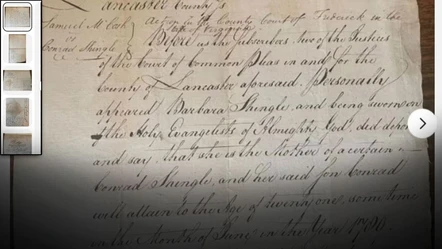 Lancaster County ſs
Samuel M Cosh
vs
Conrad Shingle
Action in the County Court of Frederick in the
State of Virginia
Before us the Subscribers two of the Justices
of the Court of Common Pleas in and for the
County of Lancaster aforesaid. Personally
appeared Barbara Shingle, and being sworn on
the Holy Evangelists of Almighty God, did depose
and say, that she is the Mother of a certain
Conrad Shingle, and her said son Conrad
will attain to the Age of twenty one, some time
in the Month of June in the Year 1780